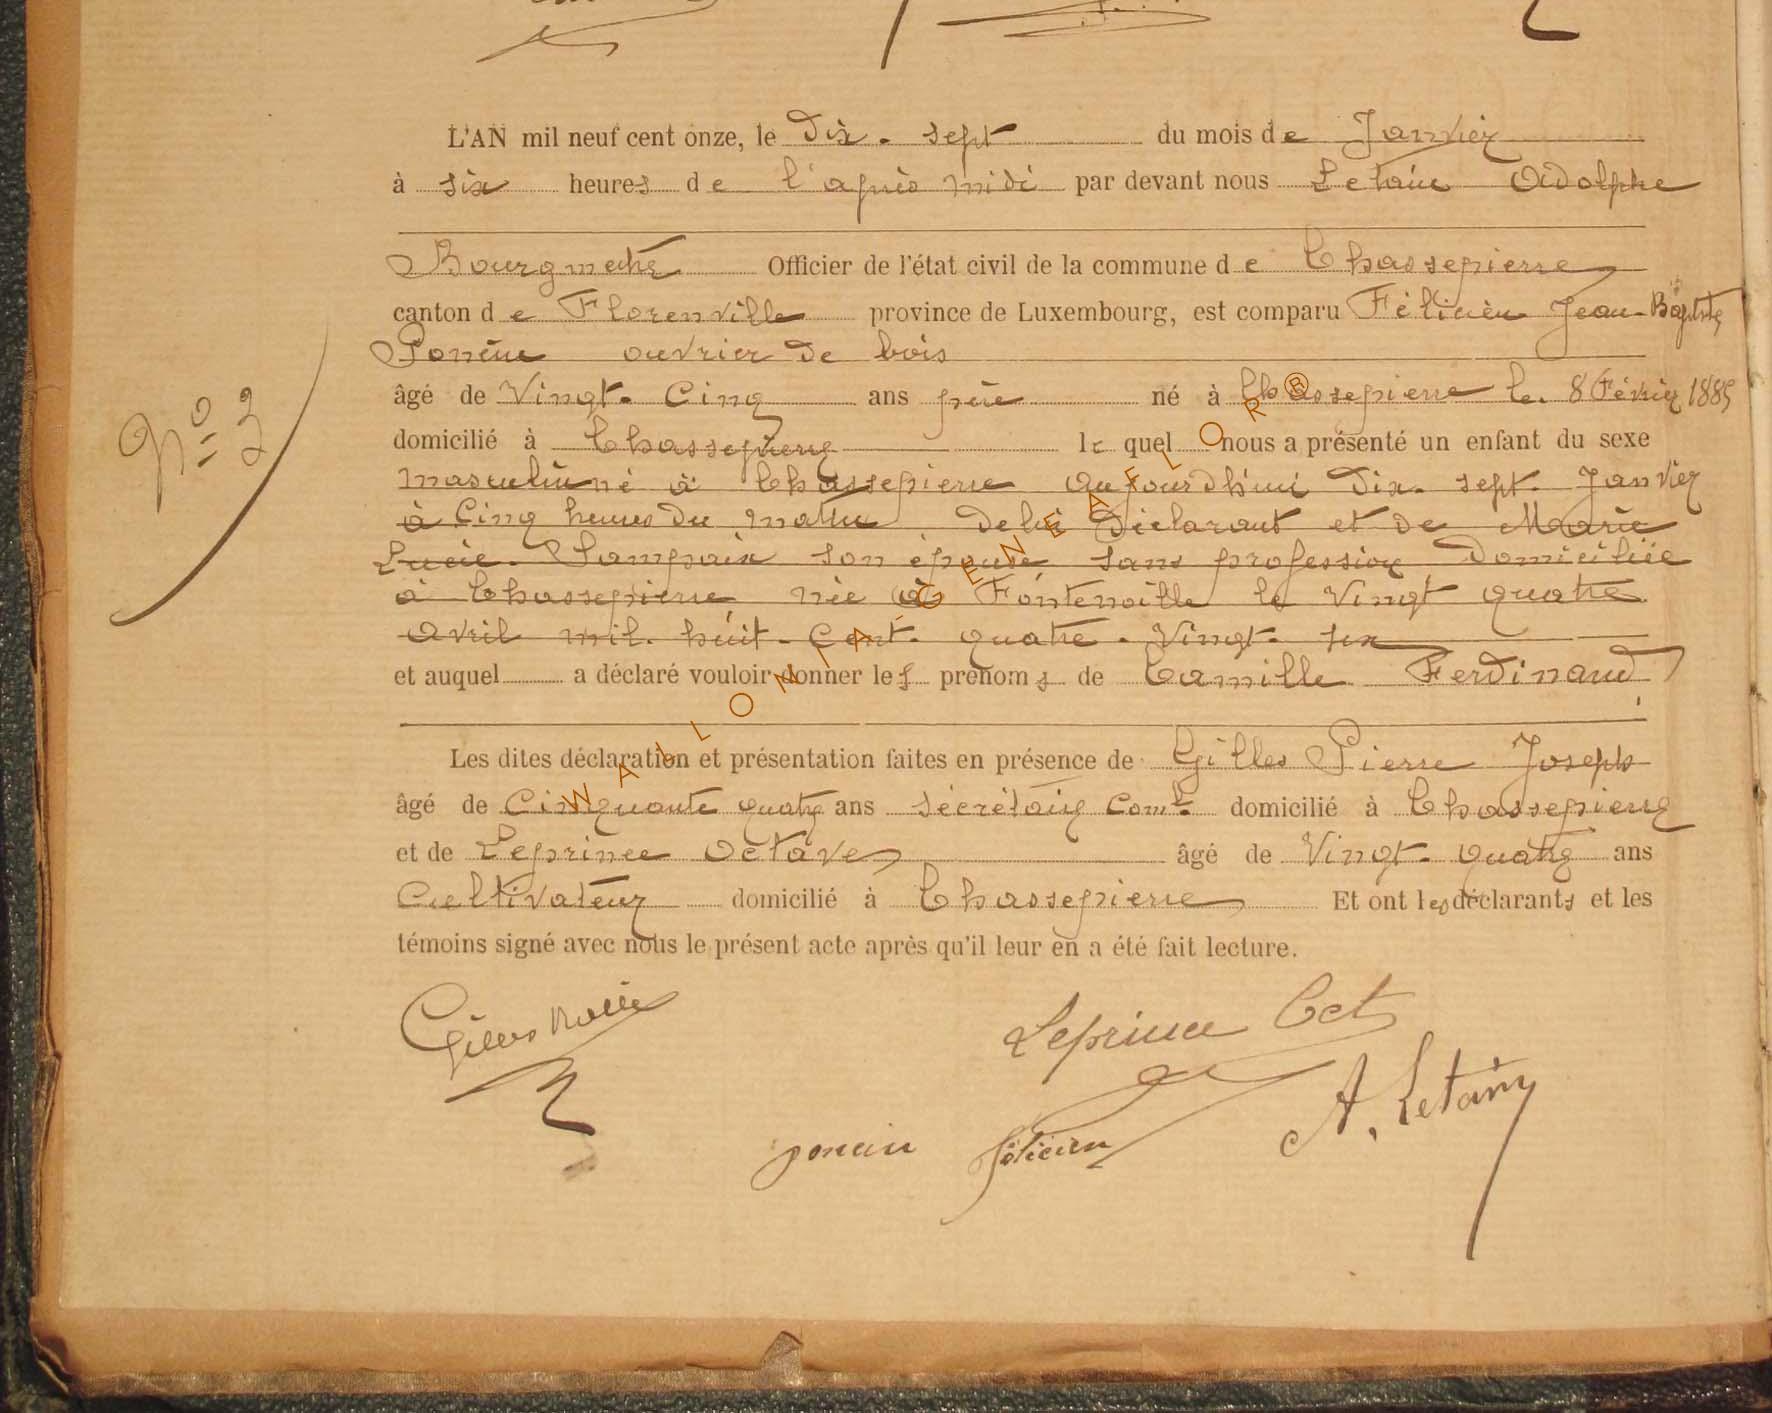 L'AN mil neuf cent onze, le Dix. sept du mois de Janvier
à six heures de l'après midi par devant nous Letain Adolphe
Bourgmestre Officier de l'état civil de la commune de Chassepierre
canton de Florenville province de Luxembourg, est comparu Félicien Jean-Baptiste
Poncin ouvrier de bois
âgé de Vingt. Cinq ans père né à Chassepierre le. 8 Février 1885
domicilié à Chassepierre lequel nous a présenté un enfant du sexe
masculin né à Chassepierre Aujourdhui Dix. sept. Janvier
à Cinq heures du matin de lui Déclarant et de Marie
Lucie. Lampaix son épouse, sans profession Domiciliée
à Chassepierre, née à Fontenoille le Vingt quatre
Avril mil. huit. Cent. quatre. Vingt. six
et auquel a déclaré vouloir donner les prénoms de Camille Ferdinand,
Les dites déclaration et présentation faites en présence de Gilles Pierre Joseph
âgé de Cinquante quatre ans Sécrétaire Coml. domicilié à Chassepierre
et de Leprince Octave âgé de Vingt. quatre ans
Cultivateur domicilié à Chassepierre Et ont les déclarants et les
témoins signé avec nous le présent acte après qu'il leur en a été fait lecture.
Nº 2
Gilles
Leprince Oct
poncin félicien
A. Letain
WALLONIA-GENEAFLOR®